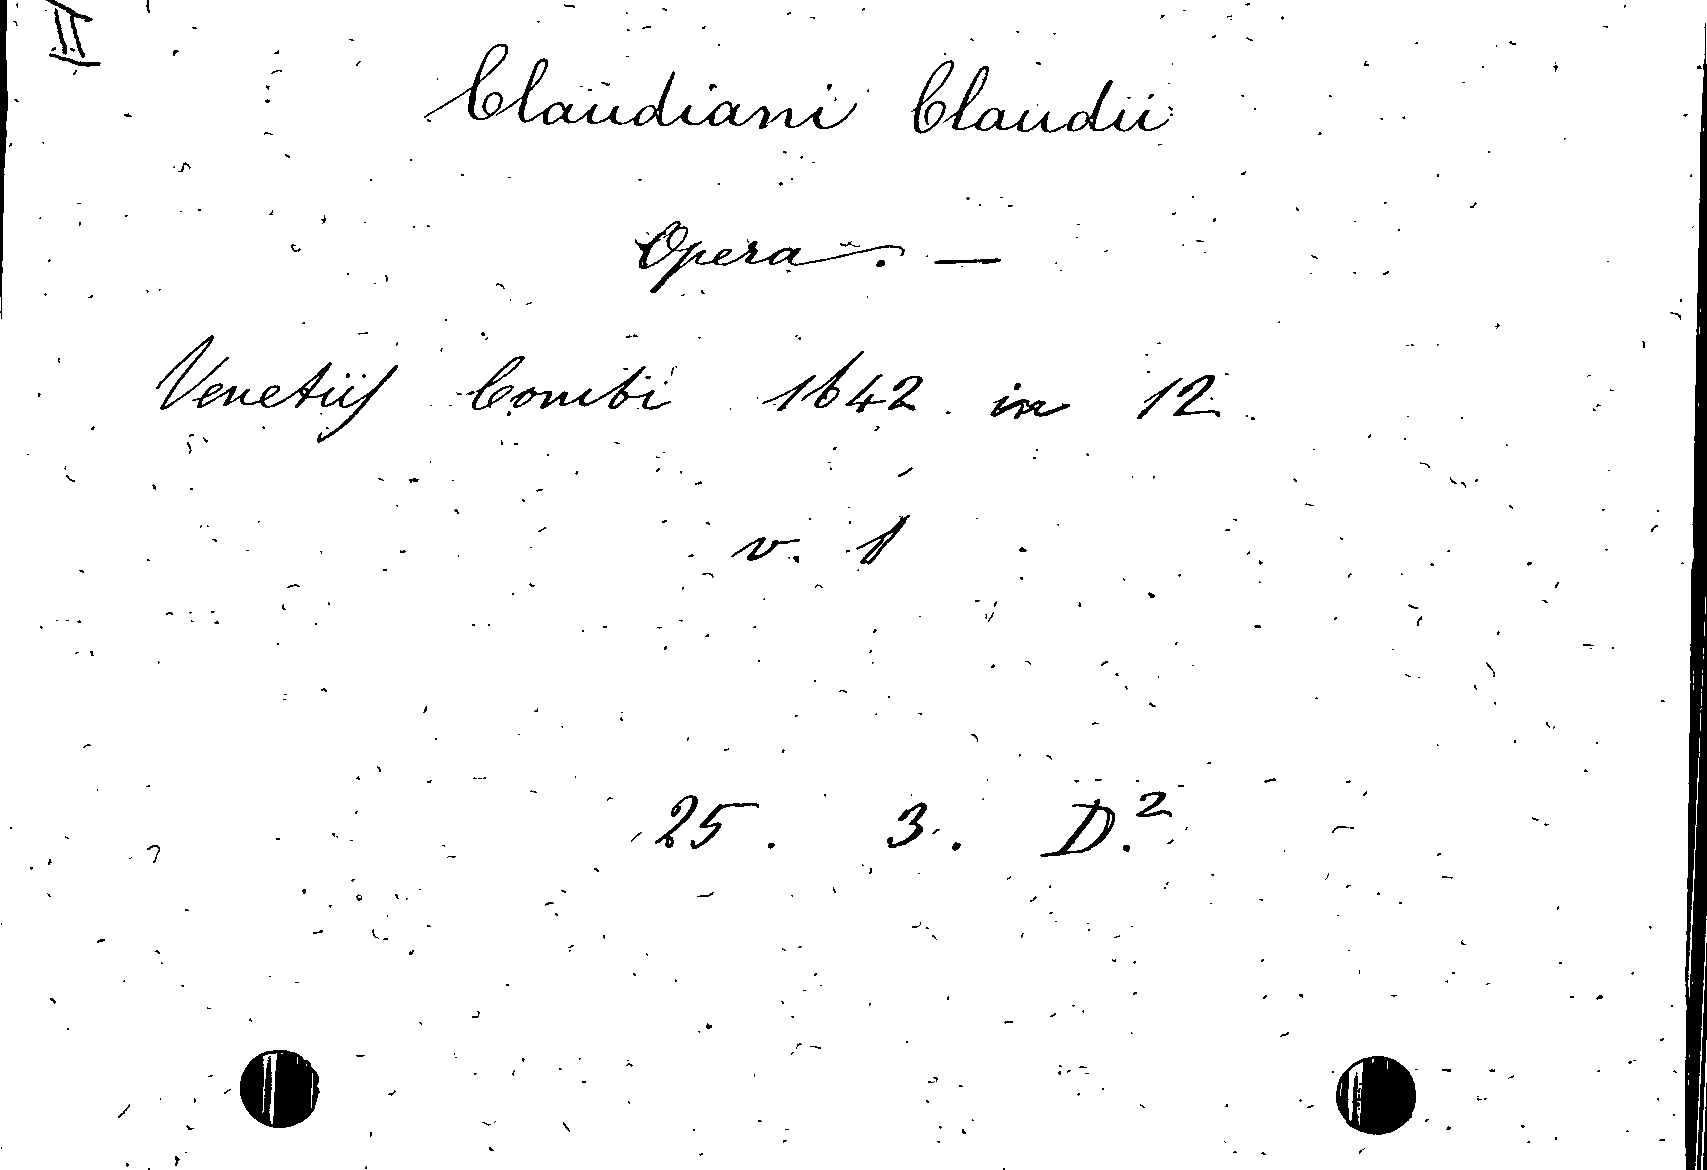 II
Claudiani Claudii
Opera. —
Venetiis Combi 1642 in 12
v. 1
25. 3. D.²